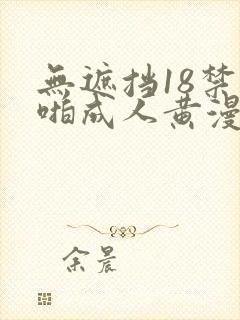 無遮挡18禁
啪成人黄漫
余晨